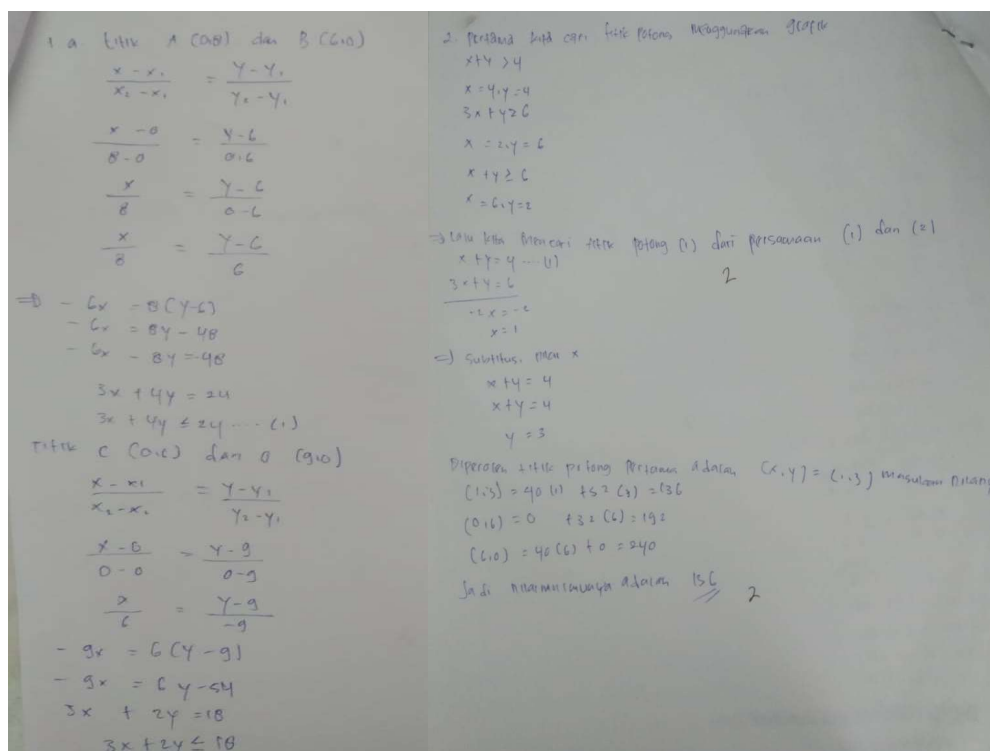 1. a. titik A (0,8) dan B (6,0)
x - x₁ / x₂ - x₁ = y - y₁ / y₂ - y₁
x - 0 / 8 - 0 = y - 6 / 0 - 6
x / 8 = y - 6 / 0 - 6
x / 8 = y - 6 / 6
=> - 6x = 8(y-6)
- 6x = 8y - 48
- 6x - 8y = -48
3x + 4y = 24
3x + 4y ≤ 24 .... (1)
Titik C (0,6) dan D (9,0)
x - x₁ / x₂ - x₁ = y - y₁ / y₂ - y₁
x - 0 / 0 - 0 = y - 9 / 0 - 9
x / 6 = y - 9 / -9
- 9x = 6(y - 9)
- 9x = 6y - 54
3x + 2y = 18
3x + 2y ≤ 18
2. Pertama kita cari titik potong menggunakan grafik
x+y ≥ 4
x = 4, y = 4
3x + y ≥ 6
x = 2, y = 6
x + y ≥ 6
x = 6, y = 2
=> Lalu kita mencari titik potong (1) dari persamaan (1) dan (2)
x + y = 4 ... (1)
2
3x + y = 6
-2x = -2
x = 1
=> Subtitusi x
x + y = 4
x + y = 4
y = 3
Diperoleh titik potong pertama adalah (x,y) = (1,3)
(1,3) = 40 (1) + 32 (3) = 136
(0,6) = 0 + 32 (6) = 192
(6,0) = 40 (6) + 0 = 240
Jadi adalah 136
2